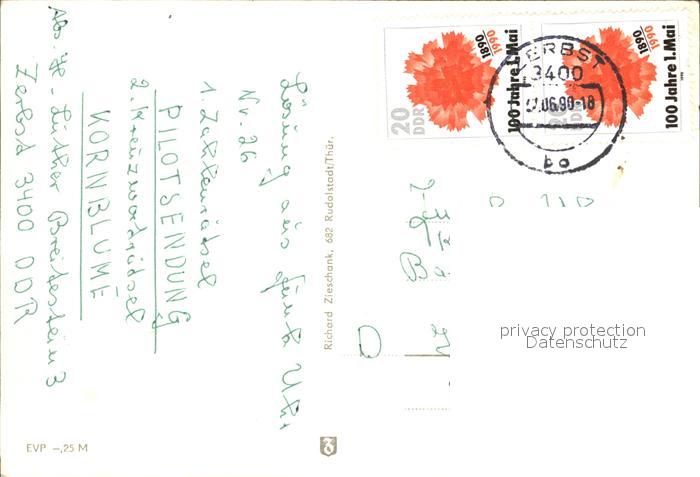 Lösung aus Funk Uhr
Nr. 26
1. Zahlenrätsel
PILOTSENDUNG
2. Kreuzworträtsel
KORNBLUME
Zerbst 3400 DDR
Richard Zieschank, 682 Rudolstadt/Thür.
EVP –,25 M
20
DDR
1890
1990
100 Jahre 1. Mai
1890
1990
100 Jahre 1. Mai
ZERBST
3400
.06.90-18
bo
privacy protection
Datenschutz